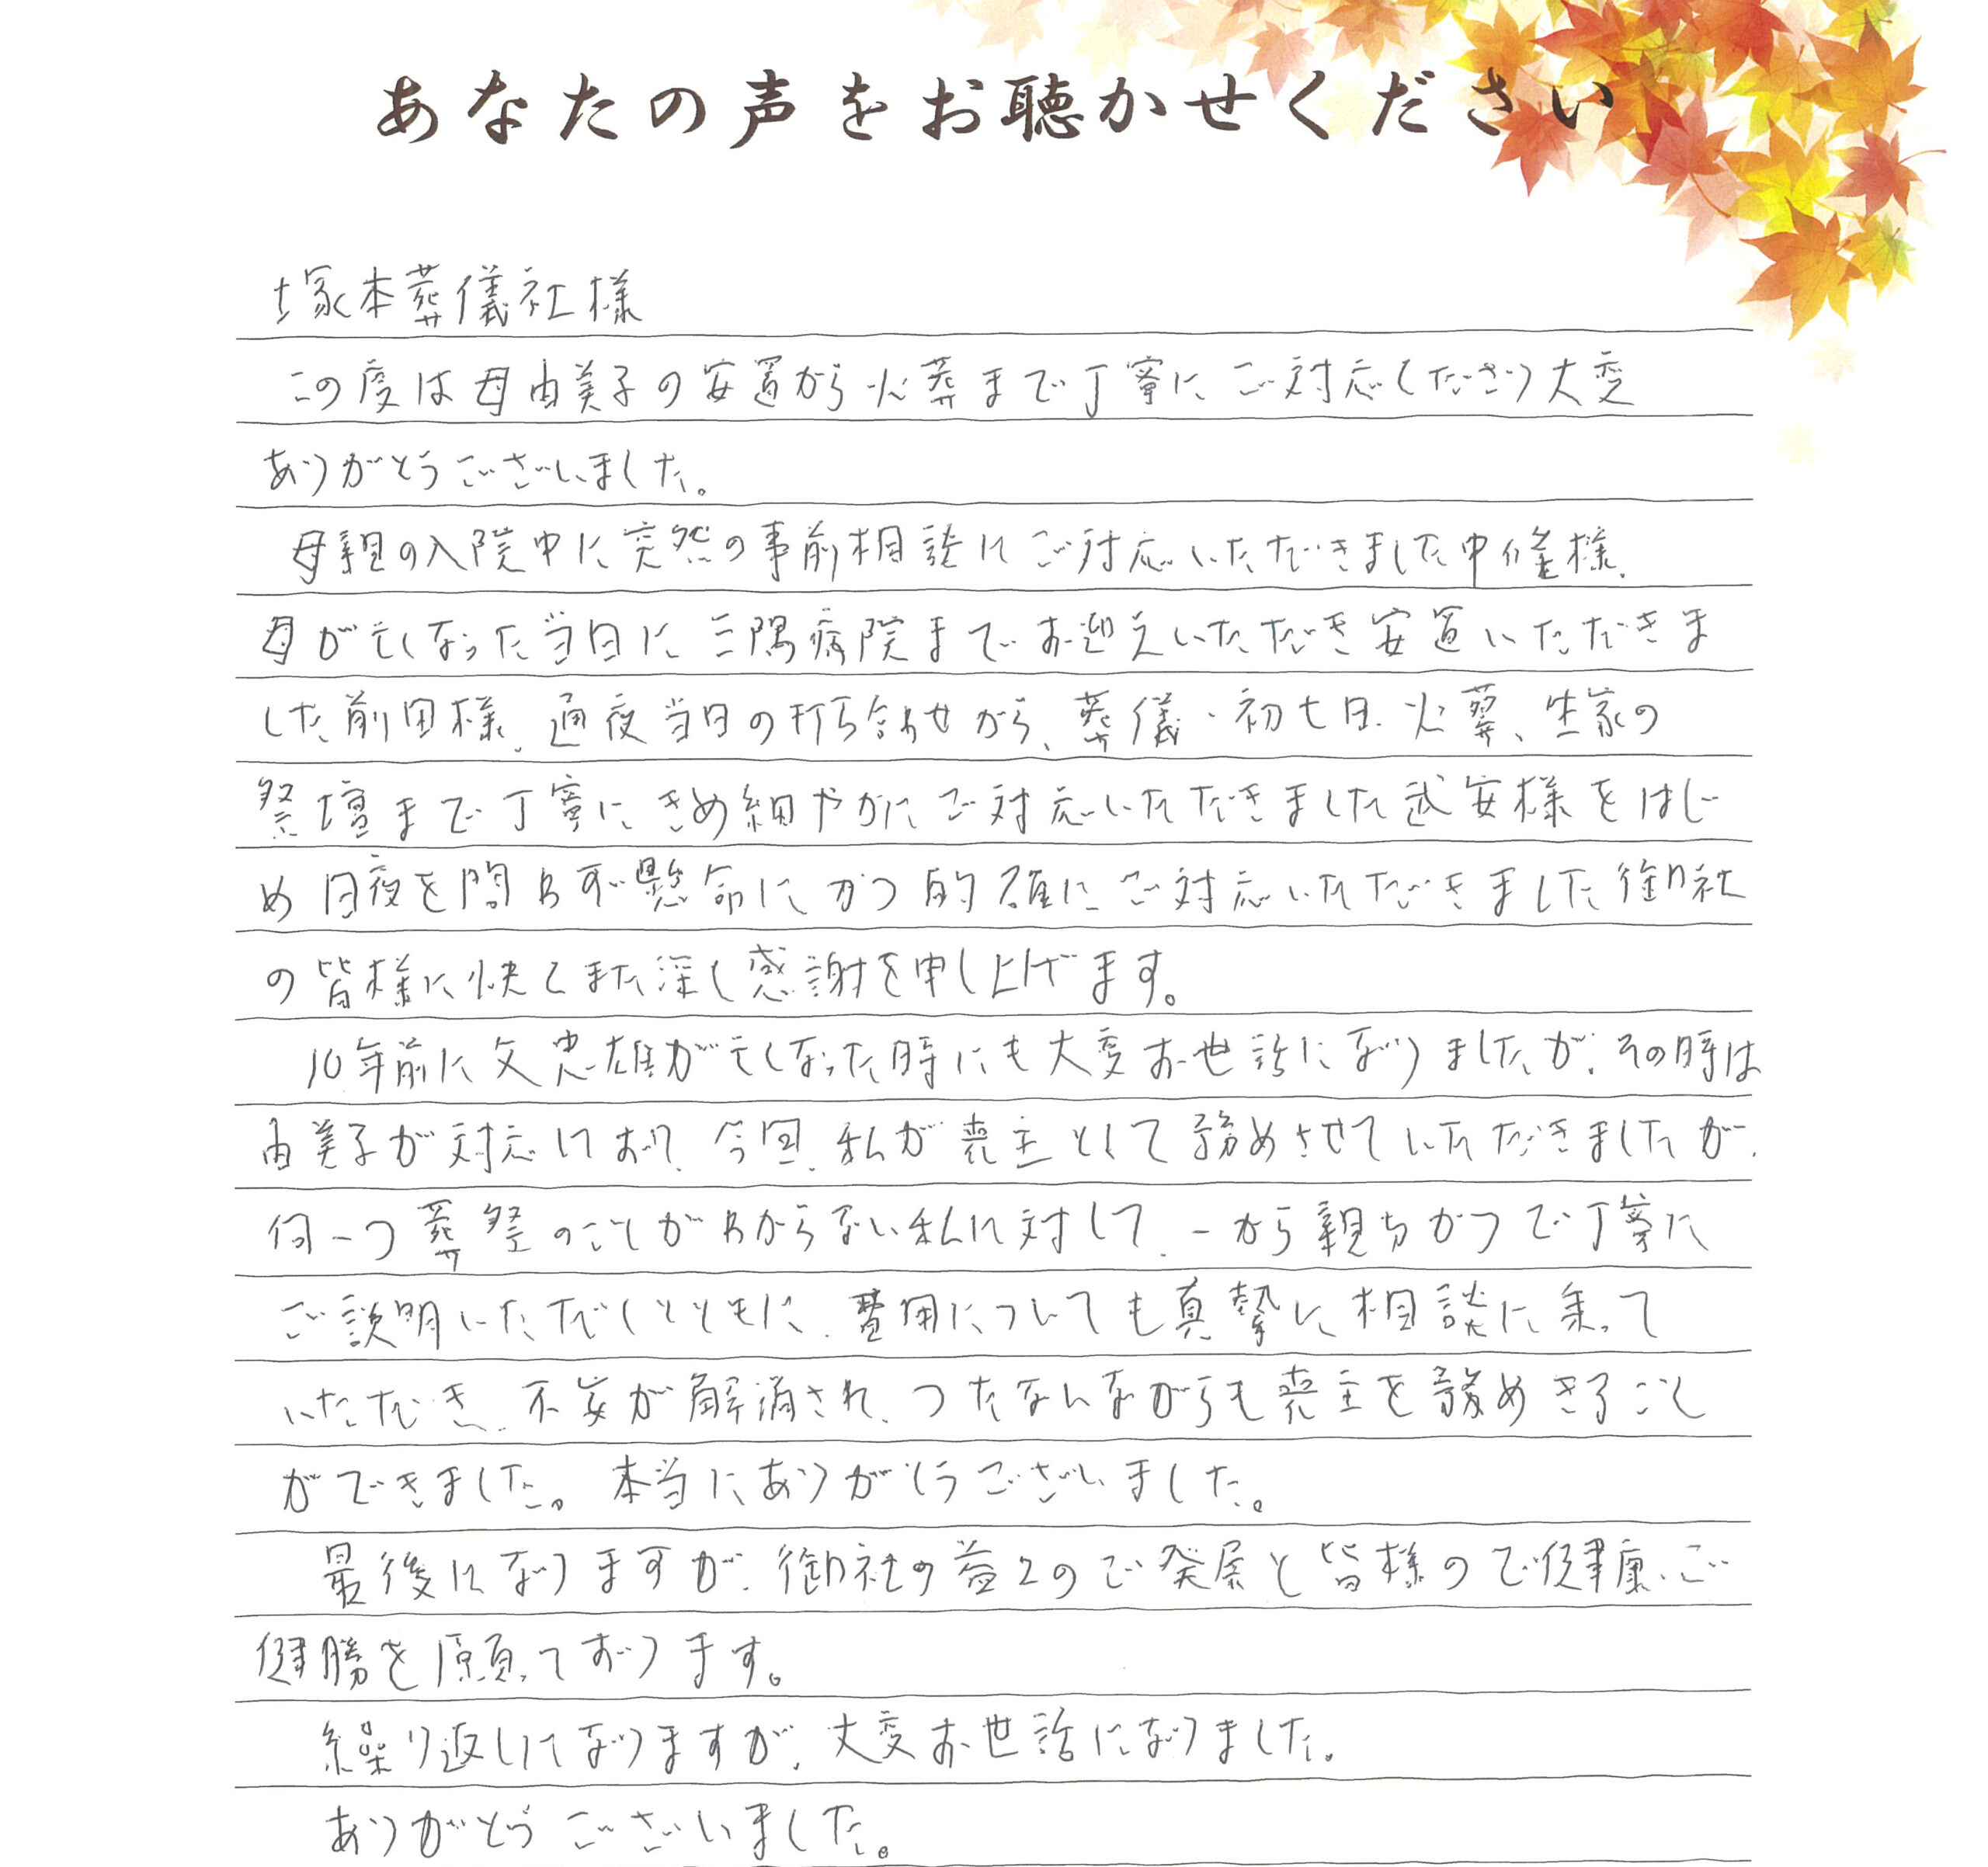 あなたの声をお聴かせください
塚本葬儀社様
この度は母由美子の安置から火葬まで丁寧にご対応くださり大変
ありがとうございました。
母親の入院中に突然の事前相談にご対応いただきました中 様、
母が亡くなった当日に三隅病院までお迎えいただき安置いただきま
した前田様、通夜当日の打ち合わせから、葬儀・初七日、火葬、生家の
祭壇まで丁寧にきめ細やかにご対応いただきました武安様をはじ
め日夜を問わず懸命にかつ的確にご対応いただきました御社
の皆様に快くまた深く感謝を申し上げます。
10年前に父忠雄が亡くなった時にも大変お世話になりましたが、その時は
由美子が対応しており、今回、私が喪主として務めさせていただきましたが、
何一つ葬祭のことがわからない私に対して、一から親切かつご丁寧に
ご説明いただくとともに、費用についても真摯に相談に乗って
いただき、不安が解消され、つたないながらも喪主を務めきること
ができました。本当にありがとうございました。
最後になりますが、御社の益々のご発展と皆様のご健康、ご
健勝を願っております。
繰り返しになりますが、大変お世話になりました。
ありがとうございました。